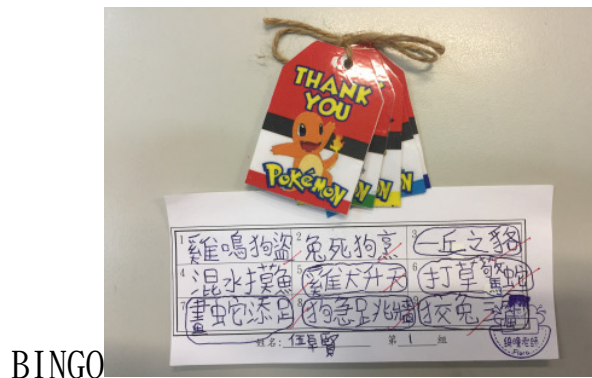 THANK
YOU
POKéMON
1 雞鳴狗盜 2 兔死狗烹 3 一丘之貉
4 混水摸魚 5 雞犬升天 6 打草驚蛇
7 畫蛇添足 8 狗急跳牆 9 狡兔三
姓名: 第 1 組
老師
BINGO